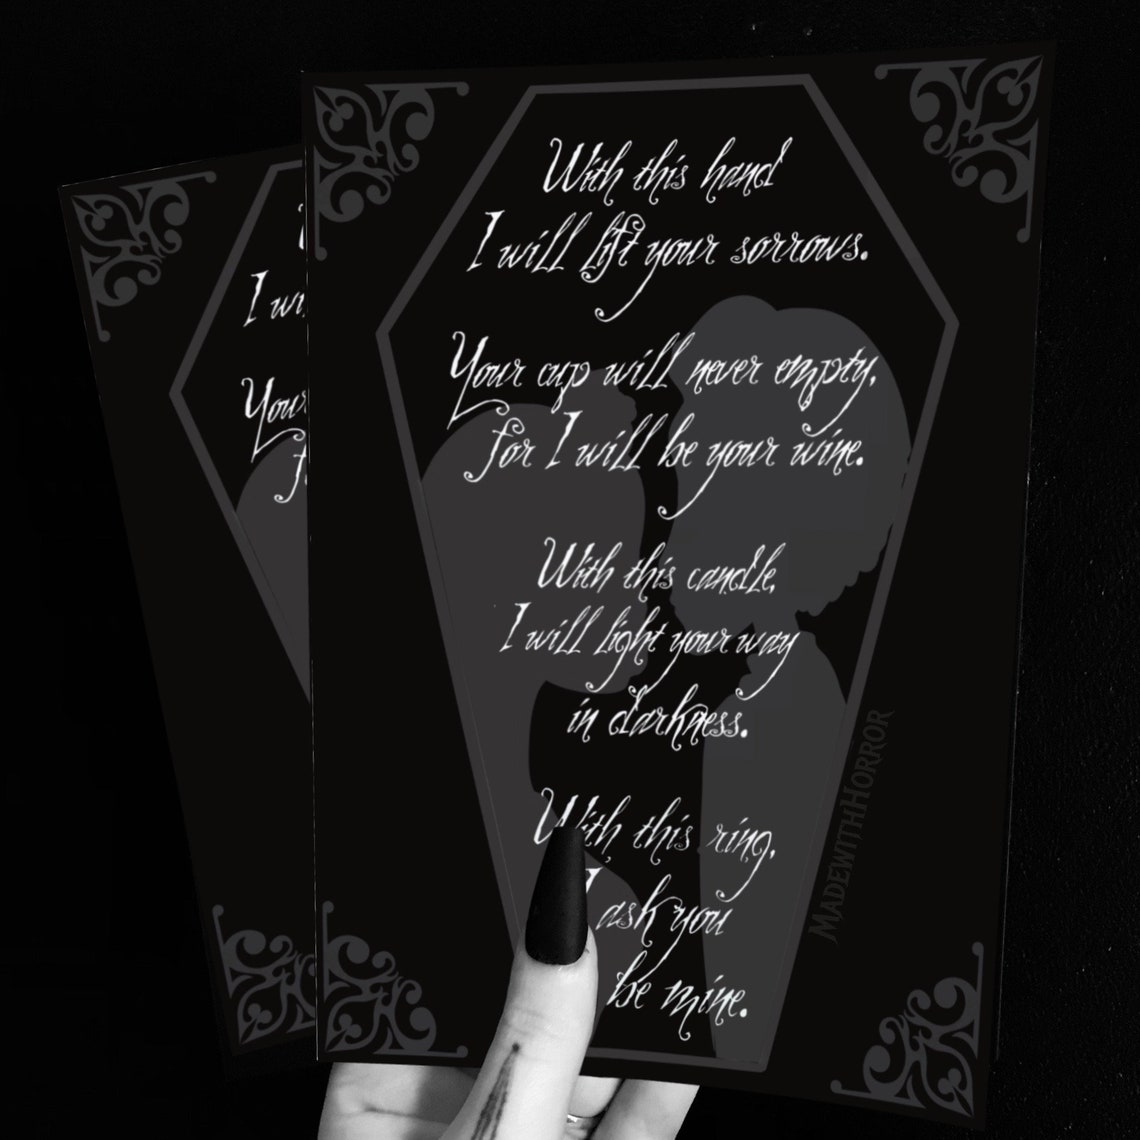 With this hand
I will lift your sorrows.
Your cup will never empty,
for I will be your wine.
With this candle,
I will light your way
in darkness.
With this ring,
I ask you
be mine.
MADEWITHHORROR
I wi
Your
f